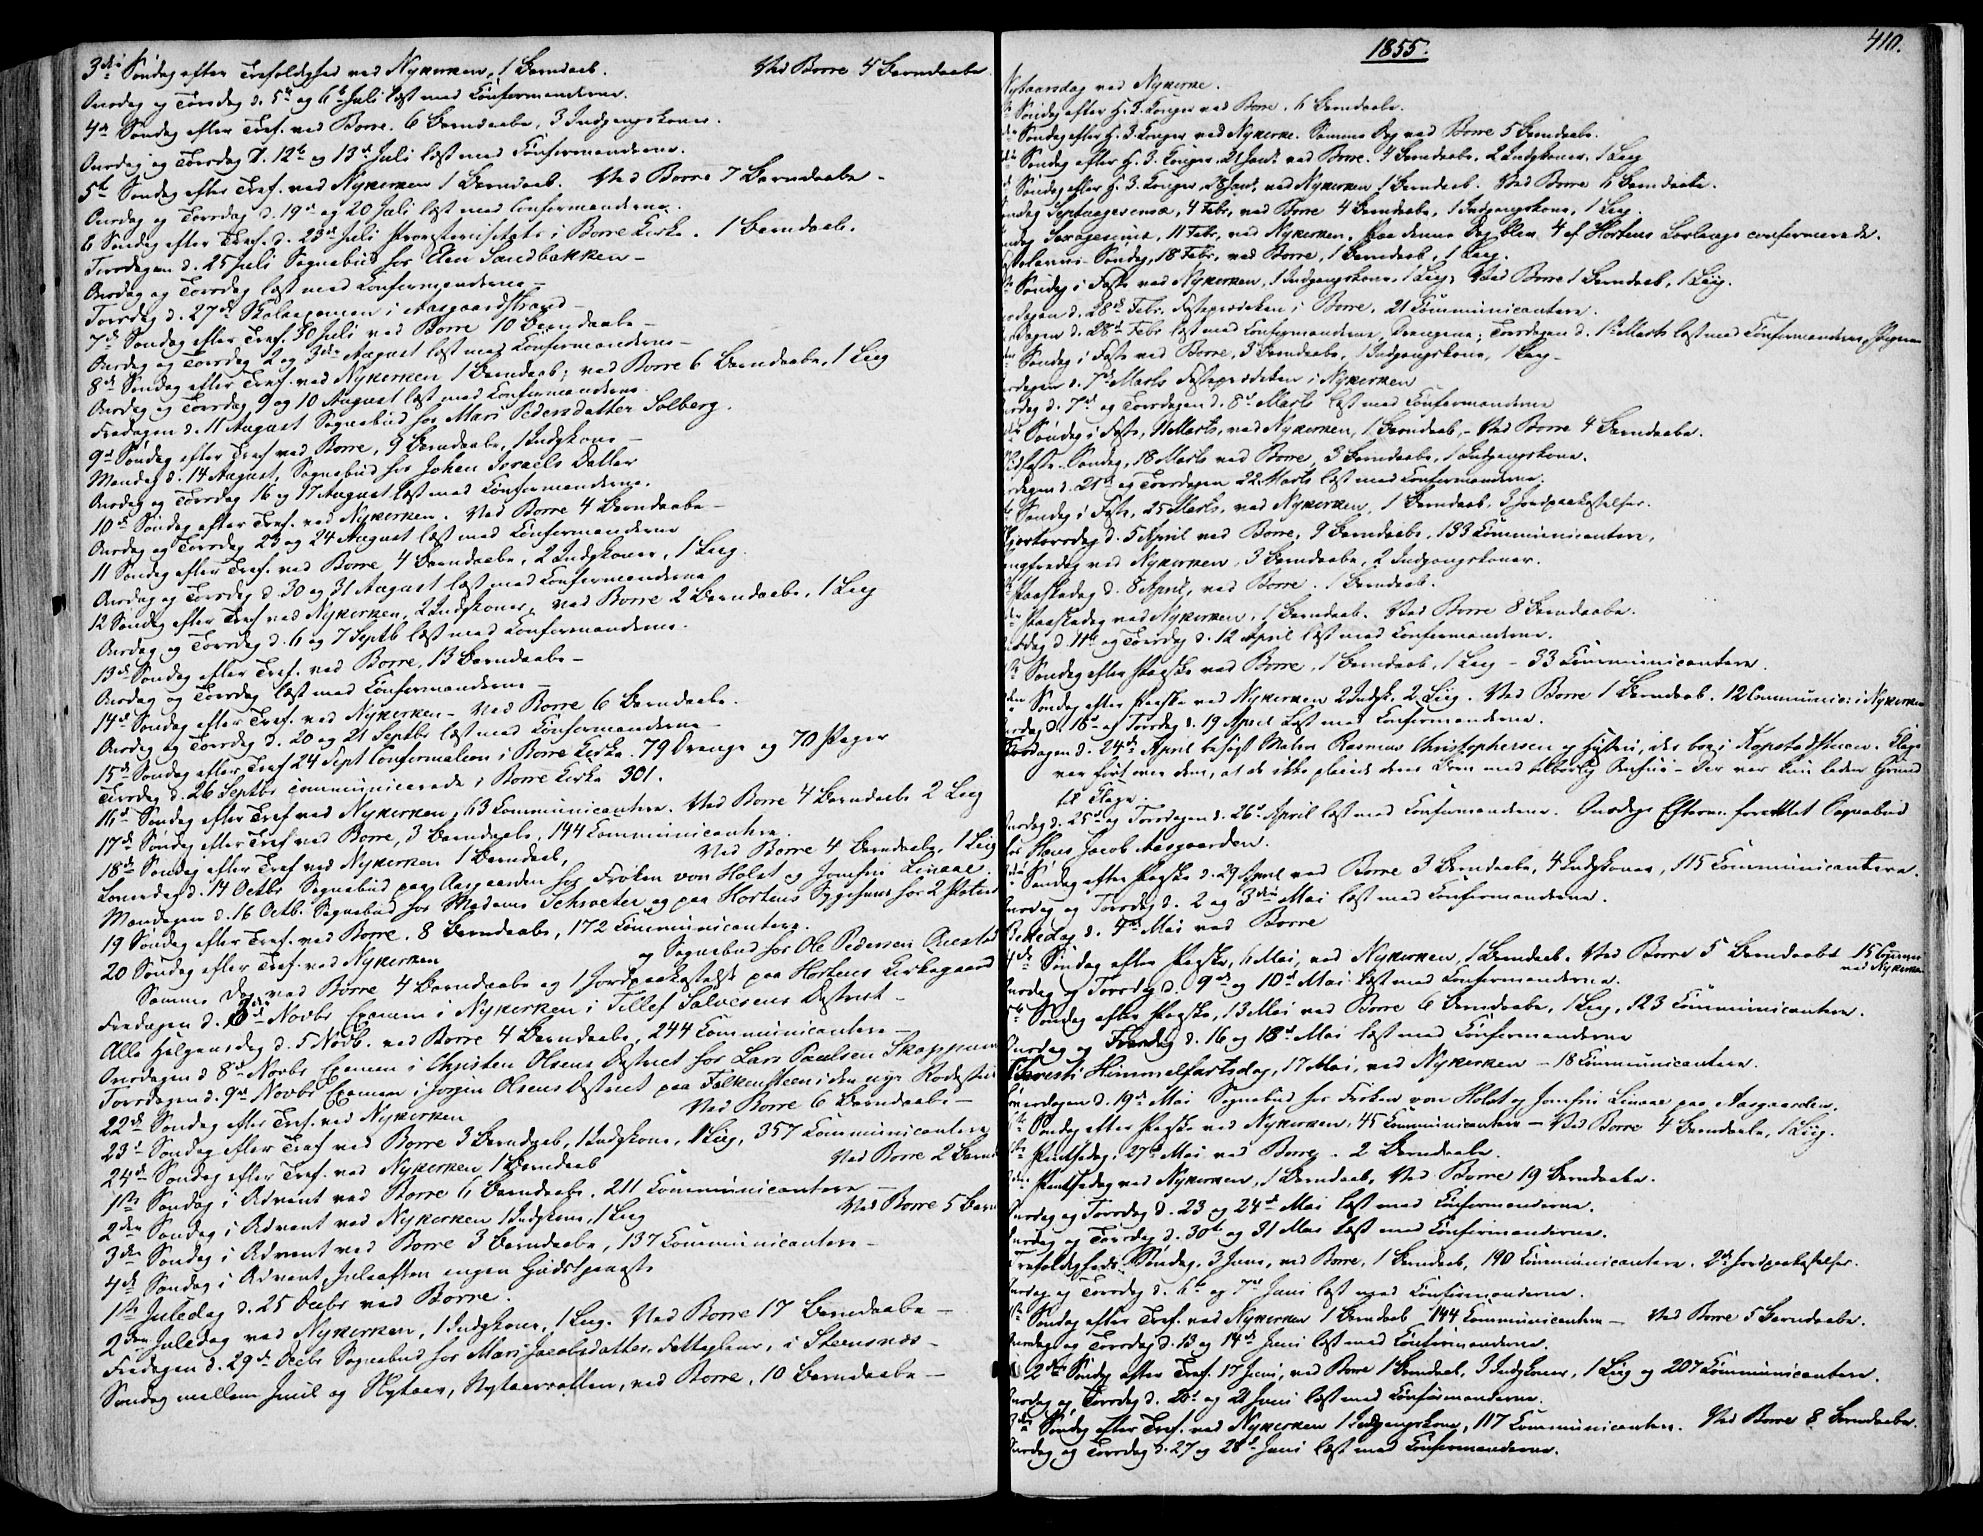 3die Søndag efter Trefoldighed ved Nykerken, 1 Barnedaab. Ved Borre 4 Barnedaabe
Onsdag og Torsdag d. 5te og 6te Juli læst med Confirmanderne.
4de Søndag efter Tref. ved Borre. 6 Barnedaabe, 3 Indgangskoner.
Onsdag og Torsdag d. 12te og 13de Juli læst med Confirmanderne.
5te Søndag efter Tref. ved Nykerken 1 Barnedaab. Ved Borre 7 Barnedaabe -
Onsdag og Torsdag d. 19de og 20 Juli læst med Confirmanderne.
6 Søndag efter Tref. d. 23de Juli Provstevisitats i Borre Kirke. 1 Barnedaab.
Tirsdagen d. 25 Juli Sognebud for Elen Sandbakken -
Onsdag og Torsdag læst med Confirmanderne -
Torsdag d. 27de Skoleexamen i Aasgaardstrand -
7de Søndag efter Tref. 30 Juli ved Borre 10 Barnedaabe -
Onsdag og Torsdag 2 og 3die August læst med Confirmanderne -
8de Søndag efter Tref. ved Nykerken 1 Barnedaab; ved Borre 6 Barnedaabe, 1 Liig
Onsdag og Torsdag 9 og 10 August læst med Confirmanderne
Fredagen d. 11 August Sognebud for Mari Pedersdatter Solberg.
9de Søndag efter Tref ved Borre, 9 Barnedaabe, 1 Indgkone -
Mandag d. 14 August, Sognebud for Johan Israels Datter
Onsdag og Torsdag 16 og 17 August læst med Confirmanderne.
10de Søndag efter Tref. ved Nykerken. Ved Borre 4 Barnedaabe -
Onsdag og Torsdag 23 og 24 August læst med Confirmanderne
11 Søndag efter Tref. ved Borre, 4 Barnedaabe, 2 Indgkoner, 1 Liig.
Onsdag og Torsdag d. 30 og 31 August læst med Confirmanderne
12 Søndag efter Tref ved Nykerken, 2 Indgkoner, ved Borre 2 Barnedaabe, 1 Liig
Onsdag og Torsdag d. 6 og 7 Septb læst med Confirmanderne.
13de Søndag efter Tref. ved Borre, 13 Barnedaabe -
Onsdag og Torsdag læst med Confirmanderne -
14de Søndag efter Tref. ved Nykerken - Ved Borre 6 Barnedaabe.
Onsdag og Torsdag d. 20 og 21 Septbr læst med Confirmanderne -
15de Søndag efter Tref 24 Sept Confirmation i Borre Kirke. 79 Drenge og 70 Piger
Tirsdag d. 26 Septbr communicerede i Borre Kirke 301.
16de Søndag efter Tref ved Nykerken, 63 Communicantere. Ved Borre 4 Barnedaabe 2 Liig
17de Søndag efter Tref ved Borre, 3 Barnedaabe, 144 Communicantere.
18de Søndag efter Tref ved Nykerken 1 Barnedaab, Ved Borre 4 Barnedaabe, 1 Liig
Løverdag d. 14 Octbr Sognebud paa Aasgaarden for Frøken von Holst og Jomfru Linaae.
Mandagen d. 16 Octb. Sognebud for Madame Schrøeter og paa Hortens Sygehuus for 2
19 Søndag efter Tref. ved Borre. 8 Barnedaabe, 172 Communicantere.
20 Søndag efter Tref. ved Nykerken og Sognebud for Ole Pedersen
Samme Dag ved Borre 4 Barnedaabe og 1 Jordpaakastelse paa Hortens Kirkegaard
Fredagen d. Novbr Examen i Nykerken i Tellef Salvesens District -
Alle Helgensdag d. 5 Novb. ved Borre 4 Barnedaabe, 244 Communicantere -
Onsdagen d 8de Novbr Examen i Christen Olsens District for Lars Paulsen Skoppum
Torsdagen d. 9de Novbr Examen i Jørgen Olsens District paa Falkensteen i den nye
22de Søndag efter Tref. ved Nykerken Ved Borre 6 Barnedaabe -
23de Søndag efter Tref ved Borre 3 Barnedaab, 1 Indgkone, 1 Liig, 357 Communicantere
24de Søndag efter Tref. ved Nykerken 1 Barnedaab Ved Borre 2
1ste Søndag i Advent ved Borre 6 Barnedaabe. 211 Communicantere -
2den Søndag i Advent ved Nykerken 1 Indgkone, 1 Liig Ved Borre 5
3die Søndag i Advent ved Borre 3 Barnedaabe, 137 Communicantere -
4de Søndag i Advent, Juleaften ingen Gudstjeneste
1ste Juledag d. 25 Decbr ved Borre.
2den Juledag ved Nykerken, 1 Indgkone, 1 Liig. Ved Borre 17 Barnedaabe -
Fredagen d. 29de Decbr Sognebud for Mari Jacobsdatter, i Steensnæs -
Søndag mellem Juul og Nytaar, Nytaarsaften, ved Borre, 10 Barnedaabe -
1855. 410.
Nytaarsdag ved Nykerke.
Søndag efter H. 3. Konger ved Borre. 6 Barnedaabe.
Søndag efter H. 3. Konger ved Nykerke. Samme Dag ved Borre 5 Barnedaabe.
Søndag efter H. 3. Konger, 21 Janr. ved Borre. 4 Barnedaabe, 2 Indgkoner, 1 Liig
Søndag efter H. 3. Konger, 28 Janr, ved Nykerken 1 Barnedaab. Ved Borre 6 Barnedaabe.
Septuagesima, 4 Febr, ved Borre 4 Barnedaabe, 1 Indgangskone, 1 Liig.
Sexagesima, 11 Febr, ved Nykerken. Paa denne Dag blev 4 af Hortens confirmerede.
Fastelavns-Søndag, 18 Febr, ved Borre, 1 Barnedaab, 1 Liig.
Søndag i Faste ved Nykerken, 1 Indgangskone, 1 Liig, Ved Borre 1 Barnedaab, 1 Liig.
d. 28de Febr. Fasteprædiken i Borre. 21 Communicantere.
d. 28de Febr læst med Confirmanderne, Drengene; Torsdagen d. 1ste Marts læst med Confirmanderne, Pigerne
Søndag i Faste ved Borre, 3 Barnedaabe, 1 Indgangskone, 1 Liig -
d. 7de Marts Fasteprædiken i Nykerken
d. 7de og Torsdagen d. 8de Marts læst med Confirmanderne
Søndag i Faste, 11 Marts, ved Nykerken, 1 Barnedaab - Ved Borre 4 Barnedaabe.
Midfaste Søndag, 18 Marts ved Borre, 3 Barnedaabe, 1 Indgangskone.
d. 21de og Torsdagen 22 Marts læst med Confirmanderne.
Søndag i Faste, 25 Marts, ved Nykerken, 1 Barnedaab, 3 Jordpaakastelser.
Skjertorsdag d. 5 April ved Borre, 9 Barnedaabe, 133 Communicantere,
Langfredag ved Nykerken, 3 Barnedaabe, 2 Indgangskoner.
Paaskedag d. 8 April, ved Borre. 1 Barnedaab.
Paaskedag ved Nykerken, 1 Barnedaab. Ved Borre 8 Barnedaabe.
Onsdag d. 11te og Torsdag d. 12 April læst med Confirmanderne.
Søndag efter Paaske ved Borre, 1 Barnedaab, 1 Liig - 33 Communicantere.
Søndag efter Paaske ved Nykerken 2 Indgk. 2 Liig. Ved Borre 1 Barnedaab. 12 Communic: i Nykerken
Onsdag d. 18de og Torsdag d. 19 April læst med Confirmanderne.
Tirsdagen d. 24de April besøgt Rasmus Christophersen og Hustru, der bor i Kopstadstuen. Klage
var ført over dem, at de ikke pleiede deres Børn med tilbørlig Omhu - Der var kun liden Grund
til Klage.
Onsdag d. 25de og Torsdagen d. 26de April læst med Confirmanderne. Onsdags Efterm. forrettet Sognebud
for Hans Jacob Aasgaarden.
Søndag efter Paaske d. 29 April ved Borre 3 Barnedaabe, 4 Indgkoner, 115 Communicantere.
Onsdag og Torsdag d. 2 og 3die Mai læst med Confirmanderne.
Bededag d. 4de Mai ved Borre
Søndag efter Paaske, 6 Mai, ved Nykerken, 1 Barnedaab. Ved Borre 5 Barnedaabe 15 Comm
ved Nykerken
Onsdag og Torsdag d. 9de og 10de Mai læst med Confirmanderne.
Søndag efter Paaske, 13 Mai ved Borre 6 Barnedaabe, 1 Liig, 123 Communicantere.
Onsdag og Fredag d. 16 og 18de Mai læst med Confirmanderne
Christi Himmelfartsdag, 17 Mai, ved Nykerken - 18 Communicantere.
Løverdagen d. 19de Mai Sognebud for Frøken von Holst og Jomfru Linaae paa Aasgaarden.
Søndag efter Paaske ved Nykerken, 45 Communicantere - Ved Borre 4 Barnedaabe, 1 Liig.
Pintsedag, 27de Mai ved Borre. 2 Barnedaabe.
Pintsedag ved Nykerken, 1 Barnedaab, Ved Borre 19 Barnedaabe.
Onsdag og Torsdag d. 23 og 24de Mai læst med Confirmanderne.
Onsdag og Torsdag d. 30te og 31 Mai læst med Confirmanderne.
Trefoldigheds Søndag, 3 Juni, ved Borre, 1 Barnedaab, 190 Communicantere. 2de Jordpaakastelser.
Onsdag og Torsdag d. 6te og 7de Juni læst med Confirmanderne.
Søndag efter Tref. ved Nykerken 1 Barnedaab 144 Communicantere - Ved Borre 5 Barnedaabe.
Onsdag og Torsdag d. 13 og 14de Juni læst med Confirmanderne.
2den Søndag efter Tref. 17 Juni, ved Borre 1 Barnedaab, 3 Indgkoner, 1 Liig og 207 Communicantere.
Onsdag og Torsdag d. 20de og 21 Juni læst med Confirmanderne.
3die Søndag efter Tref. ved Nykerken 1 Indgangskone, 117 Communicantere. Ved Borre 8 Barnedaabe.
Onsdag og Torsdag d. 27 og 28de Juni læst med Confirmanderne.